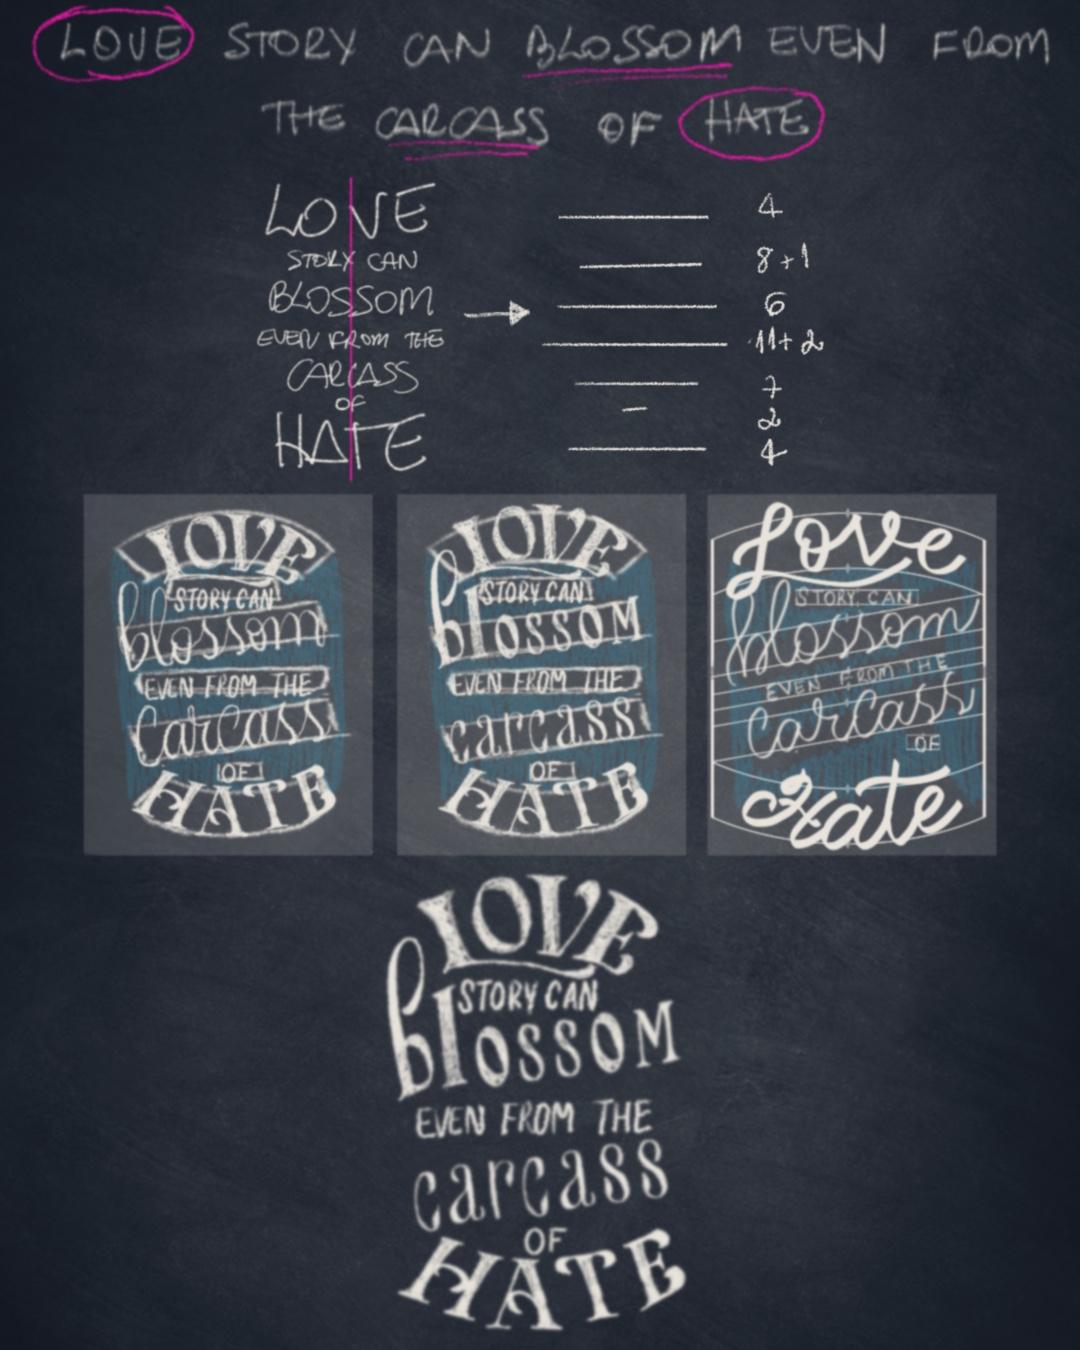 LOVE STORY CAN BLOSSOM EVEN FROM
THE CARCASS OF HATE
LOVE
STORY CAN
BLOSSOM
EVEN FROM THE
CARCASS
OF
HATE
4
8+1
6
11+2
7
2
4
LOVE
STORY CAN
blossom
EVEN FROM THE
Carcass
OF
HATE
LOVE
STORY CAN
blOSSOM
EVEN FROM THE
carcass
OF
HATE
Love
STORY CAN
blossom
EVEN FROM THE
Carcass
OF
Hate
LOVE
STORY CAN
blOSSOM
EVEN FROM THE
carcass
OF
HATE